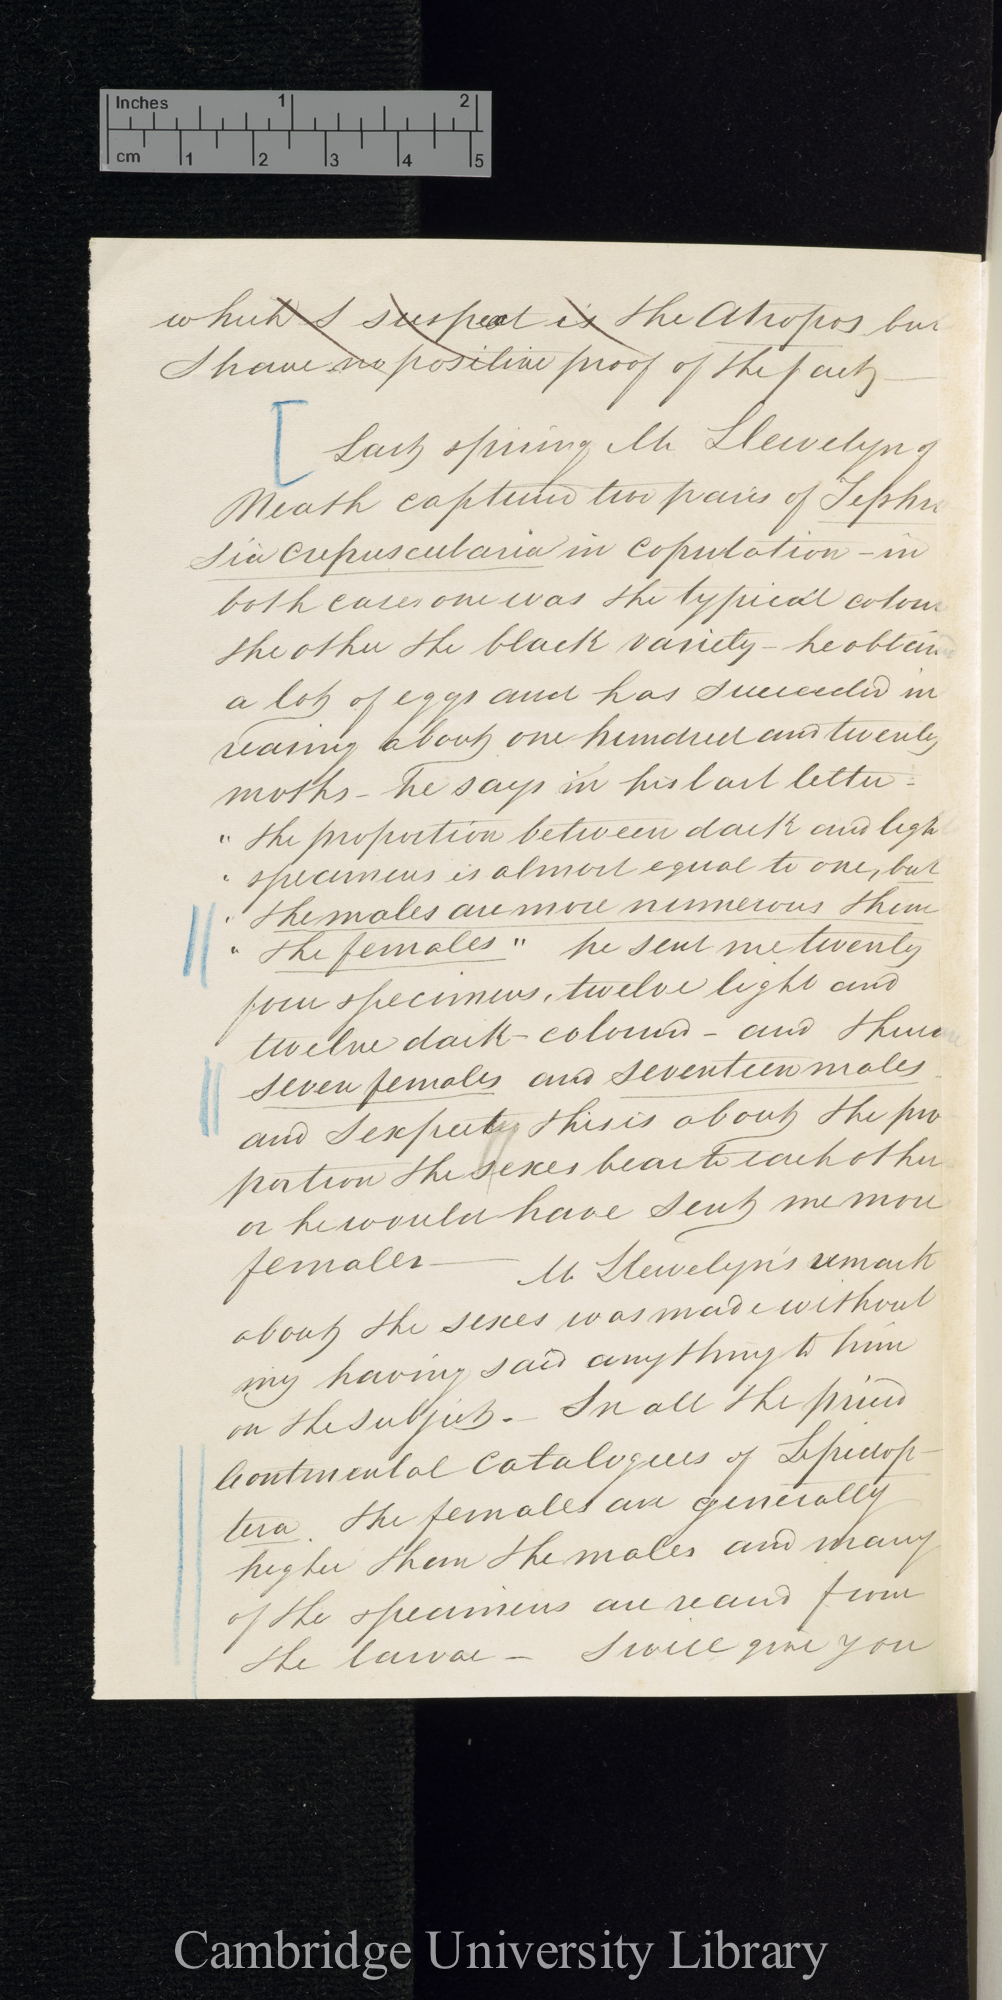 Inches 1 2
cm 1 2 3 4 5
which I suspect is the Atropos but
I have no positive proof of the fact —
Last spring Mr Llewelyn of
Neath captured two pairs of Tephro
sia crepuscularia in copulation – in
both cases one was the typical colour
the other the black variety – he obtained
a lot of eggs and has succeeded in
rearing about one hundred and twenty
moths – he says in his last letter –
" the proportion between dark and light
" specimens is almost equal to one, but
" the males are more numerous than
" the females " he sent me twenty
four specimens, twelve light and
twelve dark-coloured – and there are
seven females and seventeen males
and I expect this is about the pro
portion the sexes bear to each other
or he would have sent me more
females — Mr Llewelyn's remark
about the sexes was made without
my having said anything to him
on the subject. – In all the priced
Continental Catalogues of Lepidop–
tera. the females are generally
higher than the males and many
of the specimens are reared from
the larvae – I will give you
Cambridge University Library